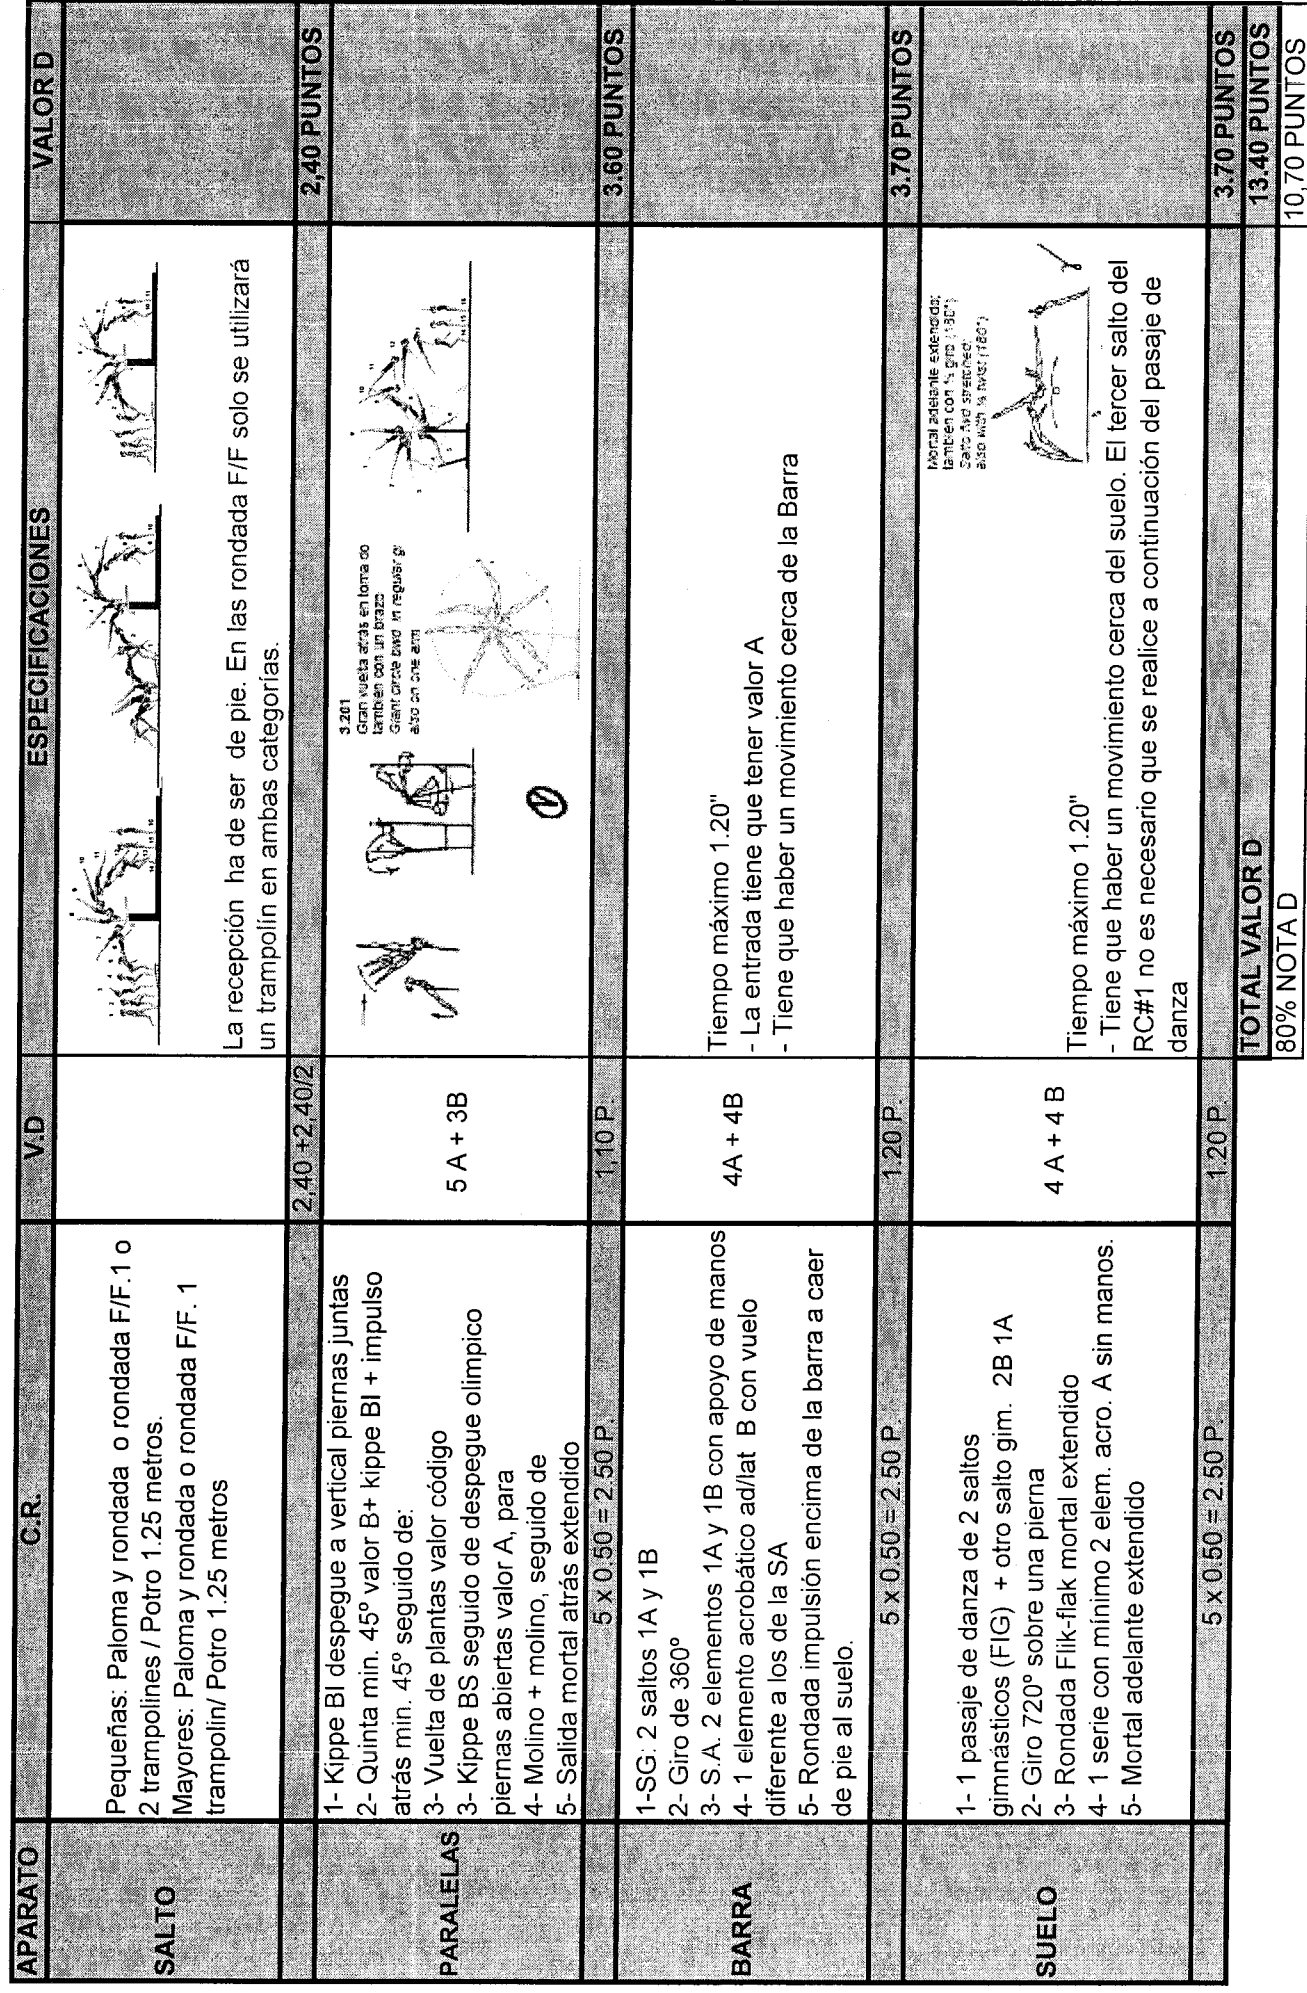 APARATO C.R. V.D ESPECIFICACIONES VALOR D
SALTO
Pequeñas: Paloma y rondada o rondada F/F.1 o
2 trampolines / Potro 1.25 metros.
Mayores: Paloma y rondada o rondada F/F. 1
trampolin/ Potro 1.25 metros
La recepción ha de ser de pie. En las rondada F/F solo se utilizará
un trampolín en ambas categorías.
2,40 +2,40/2 2,40 PUNTOS
PARALELAS
1- Kippe BI despegue a vertical piernas juntas
2- Quinta min. 45º valor B+ kippe BI + impulso
atrás min. 45º seguido de:
3- Vuelta de plantas valor código
3- Kippe BS seguido de despegue olimpico
piernas abiertas valor A, para
4- Molino + molino, seguido de
5- Salida mortal atrás extendido
5 A + 3B
3.201
Gran vuelta atrás en toma do
también con un brazo
Giant circle bwd in regular g
also on one arm
5 x 0.50 = 2.50 P. 1,10 P. 3.60 PUNTOS
BARRA
1-SG: 2 saltos 1A y 1B
2- Giro de 360º
3- S.A. 2 elementos 1A y 1B con apoyo de manos
4- 1 elemento acrobático ad/lat B con vuelo
diferente a los de la SA
5- Rondada impulsión encima de la barra a caer
de pie al suelo.
4A + 4B
Tiempo máximo 1.20"
- La entrada tiene que tener valor A
- Tiene que haber un movimiento cerca de la Barra
5 x 0.50 = 2.50 P. 1.20 P. 3.70 PUNTOS
SUELO
1- 1 pasaje de danza de 2 saltos
gimnásticos (FIG) + otro salto gim. 2B 1A
2- Giro 720º sobre una pierna
3- Rondada Flik-flak mortal extendido
4- 1 serie con minimo 2 elem. acro. A sin manos.
5- Mortal adelante extendido
4 A + 4 B
Mortal adelante extendido;
también con ½ giro (180°)
Salto fwd stretched;
also with ½ twist (180°)
Tiempo máximo 1.20"
- Tiene que haber un movimiento cerca del suelo. El tercer salto del
RC#1 no es necesario que se realice a continuación del pasaje de
danza
5 x 0.50 = 2.50 P. 1.20 P. 3.70 PUNTOS
TOTAL VALOR D 13.40 PUNTOS
80% NOTA D 10,70 PUNTOS